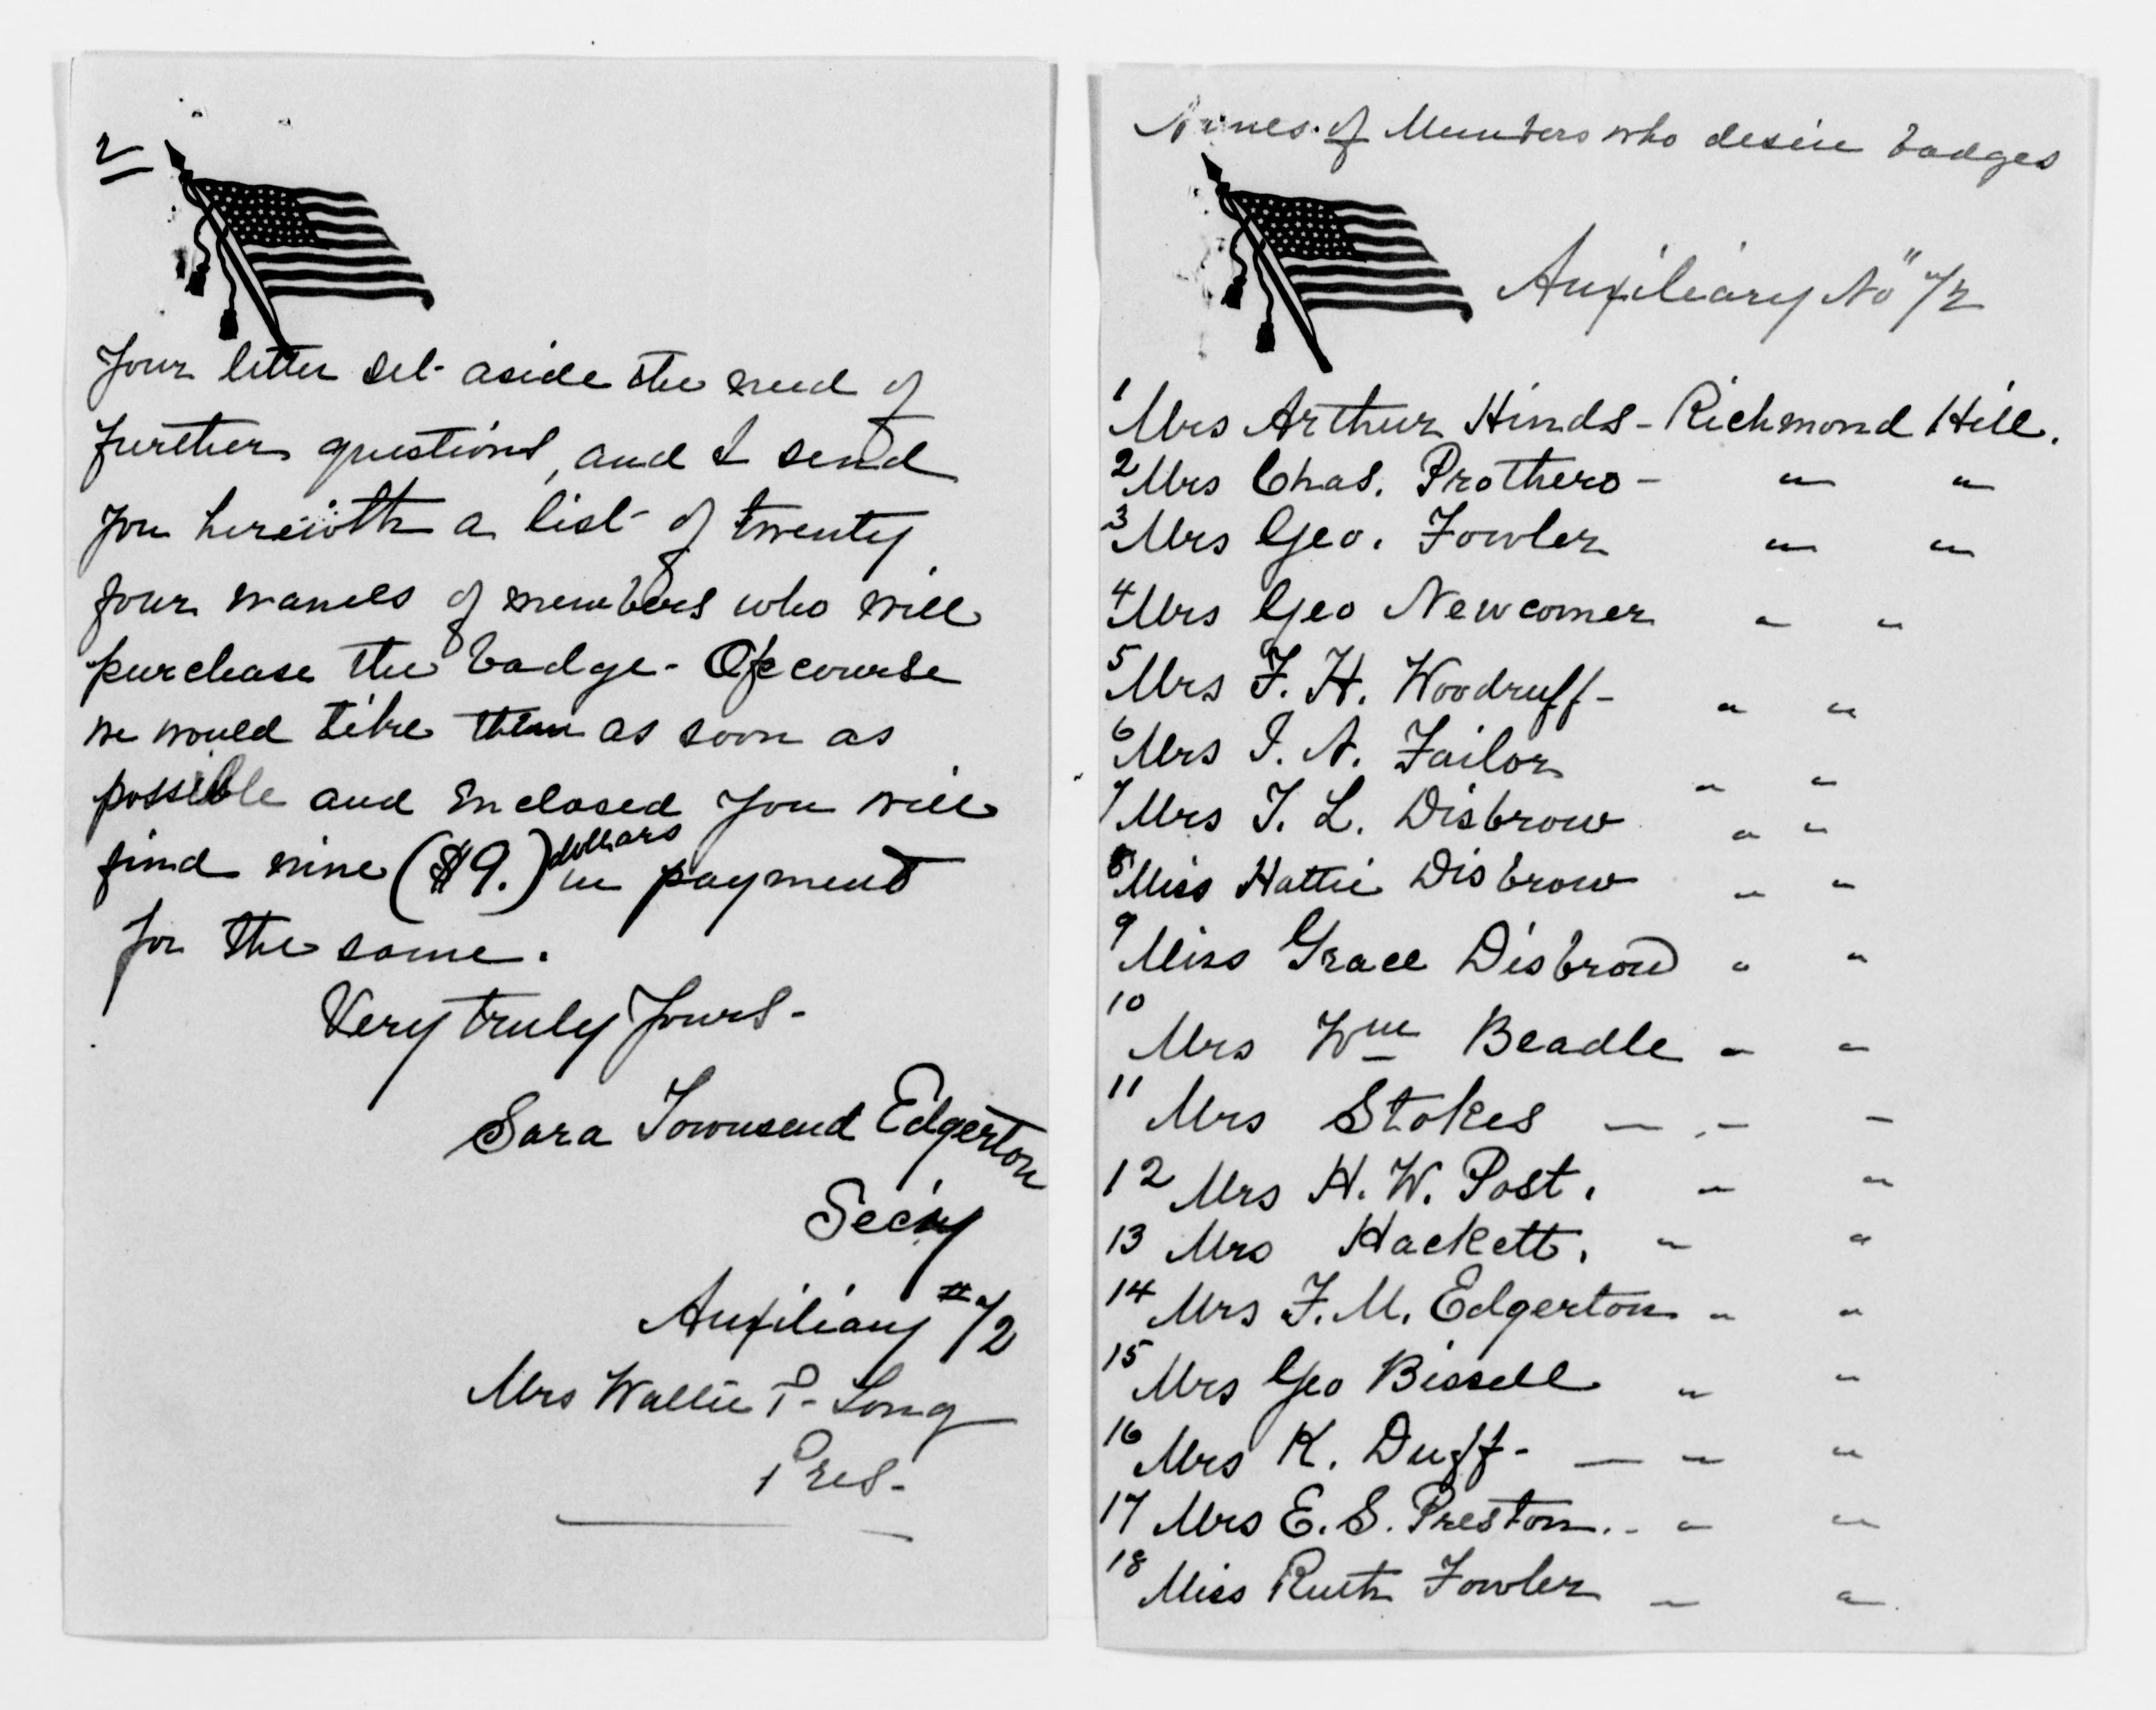 2
Your letter set aside the need of
further questions, and I send
you herewith a list of twenty
four names of members who will
purchase the badge - Of course
we would like them as soon as
possible and enclosed you will
find nine ($9.) dollars in payment
for the same.
Very truly Yours -
Sara Townsend Edgerton
Sec'ry
Auxiliary #
Mrs Wallie P. Long
Pres -
Names of Members who desire badges
Auxiliary No
1 Mrs Arthur Hinds - Richmond Hill.
2 Mrs Chas. Prothero - " "
3 Mrs Geo. Fowler " "
4 Mrs Geo Newcomer " "
5 Mrs F. H. Woodruff - " "
6 Mrs I. A. Failor " "
7 Mrs T. L. Disbrow " "
8 Miss Hattie Disbrow " "
9 Miss Grace Disbrow " "
10 Mrs Wm Beadle " "
11 Mrs Stokes — - -
12 Mrs H. W. Post. " "
13 Mrs Hackett. " "
14 Mrs F. M. Edgerton " "
15 Mrs Geo Bissell " "
16 Mrs K. Duff - — " "
17 Mrs E. S. Preston. - " "
18 Miss Ruth Fowler " "